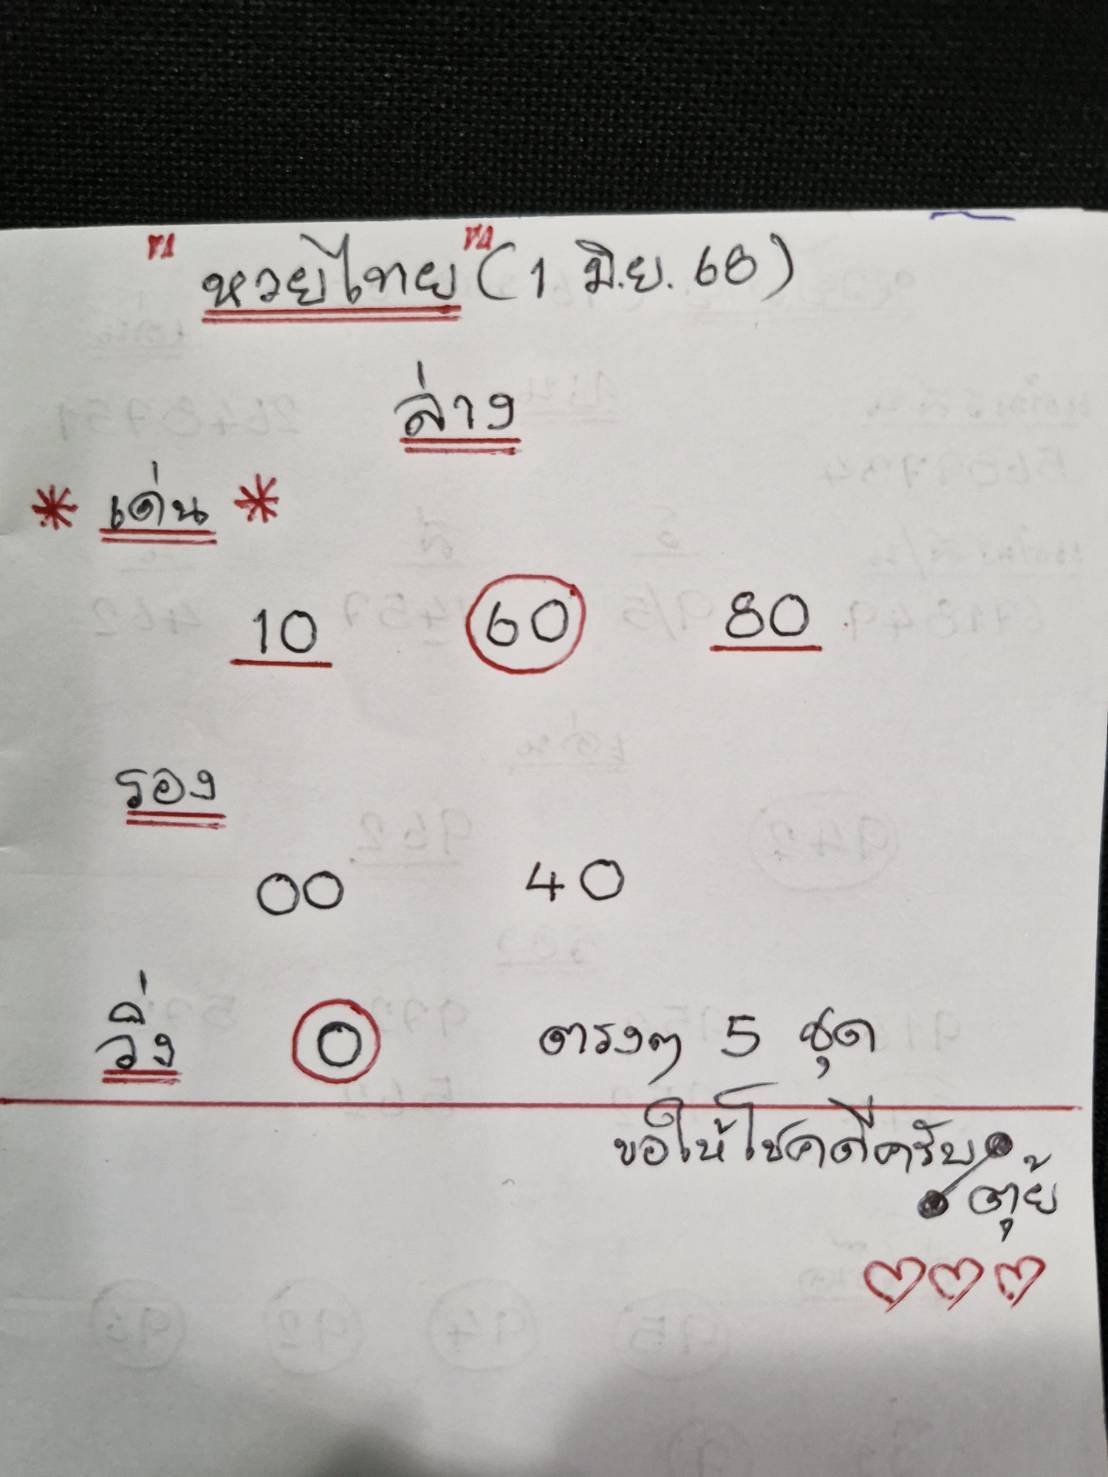 "หวยไทย" (1 มิ.ย. 68)
ล่าง
* เด่น *
10 60 80
รอง
00 40
วิ่ง 0 ตรงๆ 5 ชุด
ขอให้โชคดีครับ
ตุ้ย